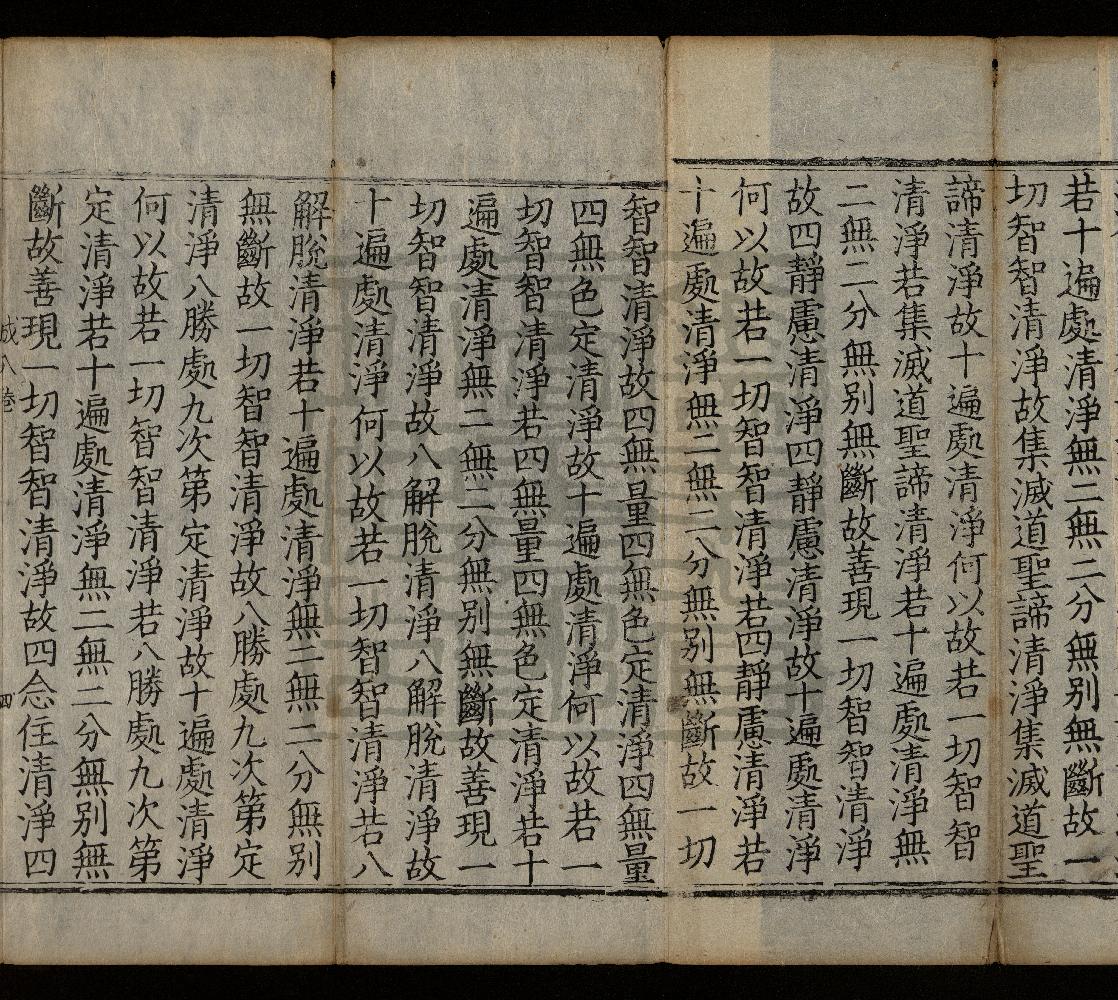 若十遍處清淨無二無二分無别無斷故一
切智智清淨故集滅道聖諦清淨集滅道聖
諦清淨故十遍處清淨何以故若一切智智
清淨若集滅道聖諦清淨若十遍處清淨無
二無二分無别無斷故善現一切智智清淨
故四靜慮清淨四靜慮清淨故十遍處清淨
何以故若一切智智清淨若四靜慮清淨若
十遍處清淨無二無二分無别無斷故一切
智智清淨故四無量四無色定清淨四無量
四無色定清淨故十遍處清淨何以故若一
切智智清淨若四無量四無色定清淨若十
遍處清淨無二無二分無别無斷故善現一
切智智清淨故八解脫清淨八解脫清淨故
十遍處清淨何以故若一切智智清淨若八
解脫清淨若十遍處清淨無二無二分無别
無斷故一切智智清淨故八勝處九次第定
清淨八勝處九次第定清淨故十遍處清淨
何以故若一切智智清淨若八勝處九次第
定清淨若十遍處清淨無二無二分無别無
斷故善現一切智智清淨故四念住清淨四
八卷 四